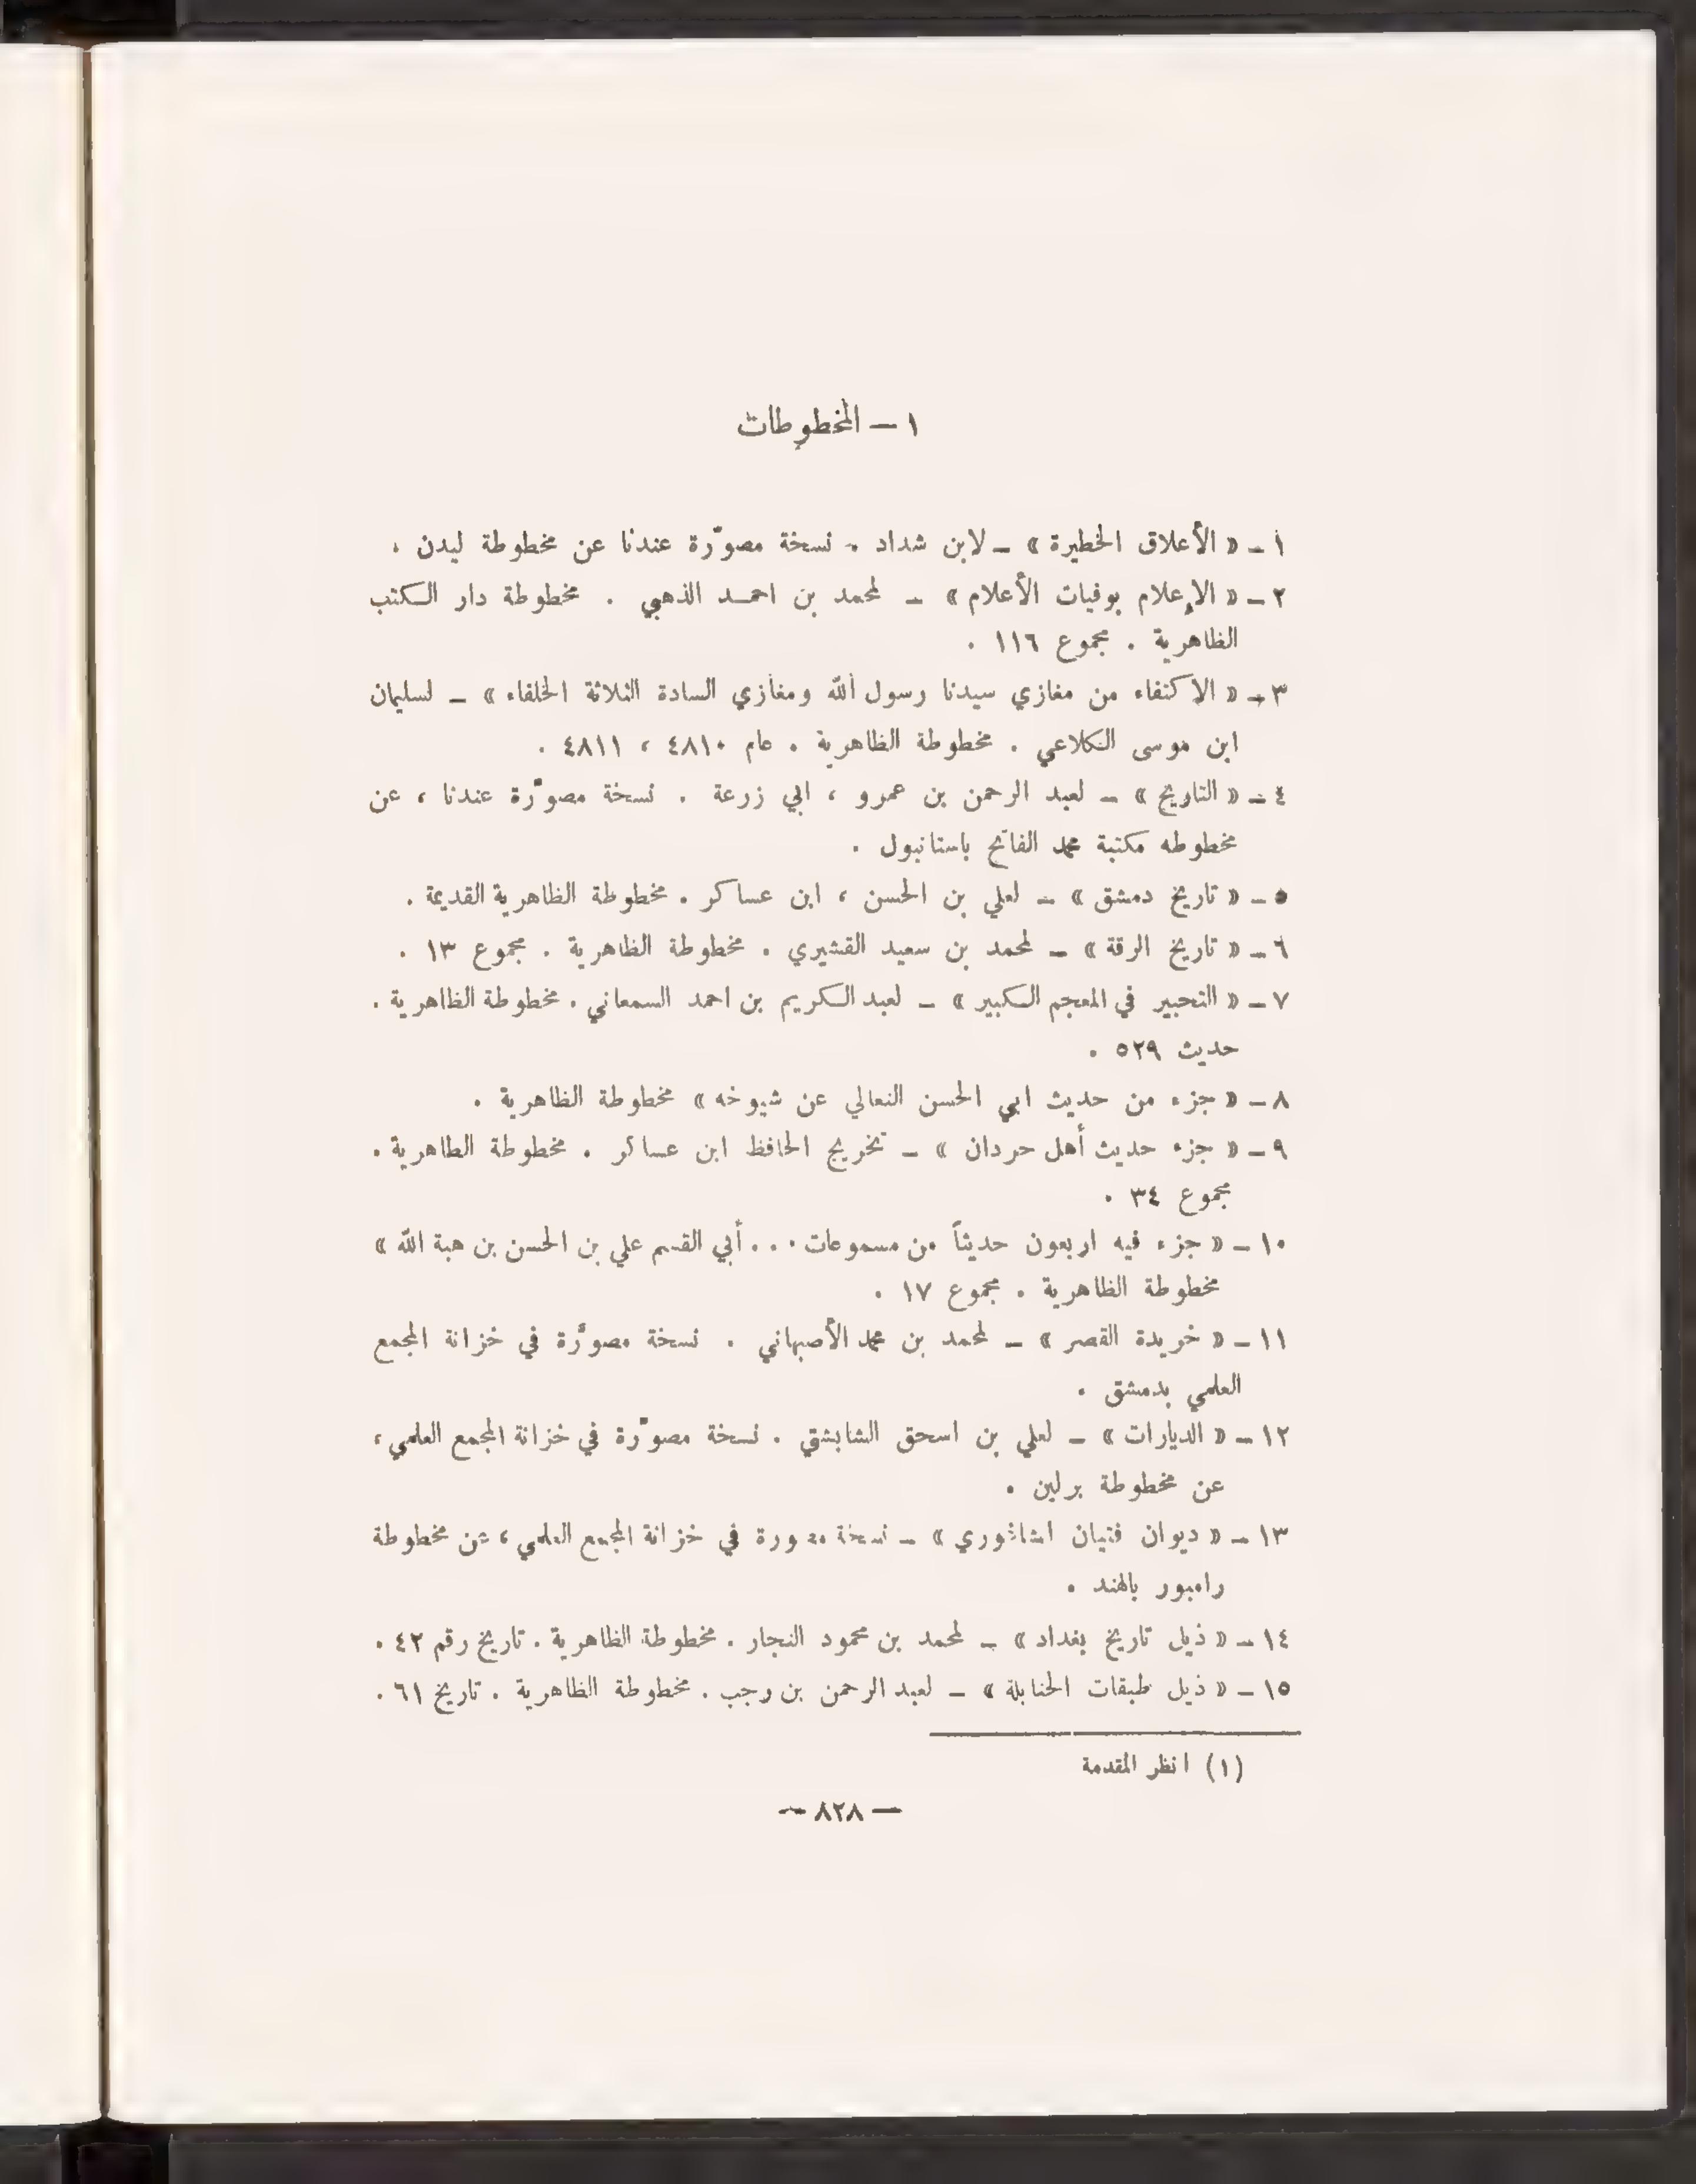 ١ — المخطوطات
١ – « الأعلاق الخطيرة » – لابن شداد . نسخة مصوّرة عندنا عن مخطوطة ليدن .
٢ – « الإعلام بوفيات الأعلام » – لمحمد بن احمد الذهبي . مخطوطة دار الكتب
الظاهرية . مجموع ١١٦ .
٣ – « الاكتفاء من مغازي سيدنا رسول الله ومغازي السادة الثلاثة الخلفاء » – لسليمان
ابن موسى الكلاعي . مخطوطة الظاهرية . عام ٤٨١٠ ، ٤٨١١ .
٤ – « التاريخ » – لعبد الرحمن بن عمرو ، ابي زرعة . نسخة مصوّرة عندنا ، عن
مخطوطه مكتبة محمد الفاتح باستانبول .
٥ – « تاريخ دمشق » – لعلي بن الحسن ، ابن عساكر . مخطوطة الظاهرية القديمة .
٦ – « تاريخ الرقة » – لمحمد بن سعيد القشيري . مخطوطة الظاهرية . مجموع ١٣ .
٧ – « التحبير في المعجم الكبير » – لعبد الكريم بن احمد السمعاني . مخطوطة الظاهرية .
حديث ٥٢٩ .
٨ – « جزء من حديث ابي الحسن النعالي عن شيوخه » مخطوطة الظاهرية .
٩ – « جزء حديث أهل حردان » – تخريج الحافظ ابن عساكر . مخطوطة الظاهرية .
مجموع ٣٤ .
١٠ – « جزء فيه اربعون حديثاً من مسموعات . . . أبي القسم علي بن الحسن بن هبة الله »
مخطوطة الظاهرية . مجموع ١٧ .
١١ – « خريدة القصر » – لمحمد بن محمد الأصبهاني . نسخة مصوّرة في خزانة المجمع
العلمي بدمشق .
١٢ – « الديارات » – لعلي بن اسحق الشابشتي . نسخة مصوّرة في خزانة المجمع العلمي ،
عن مخطوطة برلين .
١٣ – « ديوان فتيان الشاغوري » – نسخة مصورة في خزانة المجمع العلمي ، عن مخطوطة
رامبور بالهند .
١٤ – « ذيل تاريخ بغداد » – لمحمد بن محمود النجار . مخطوطة الظاهرية . تاريخ رقم ٤٢ .
١٥ – « ذيل طبقات الحنابلة » – لعبد الرحمن بن رجب . مخطوطة الظاهرية . تاريخ ٦١ .
(١) انظر المقدمة
— ٨٢٨ —